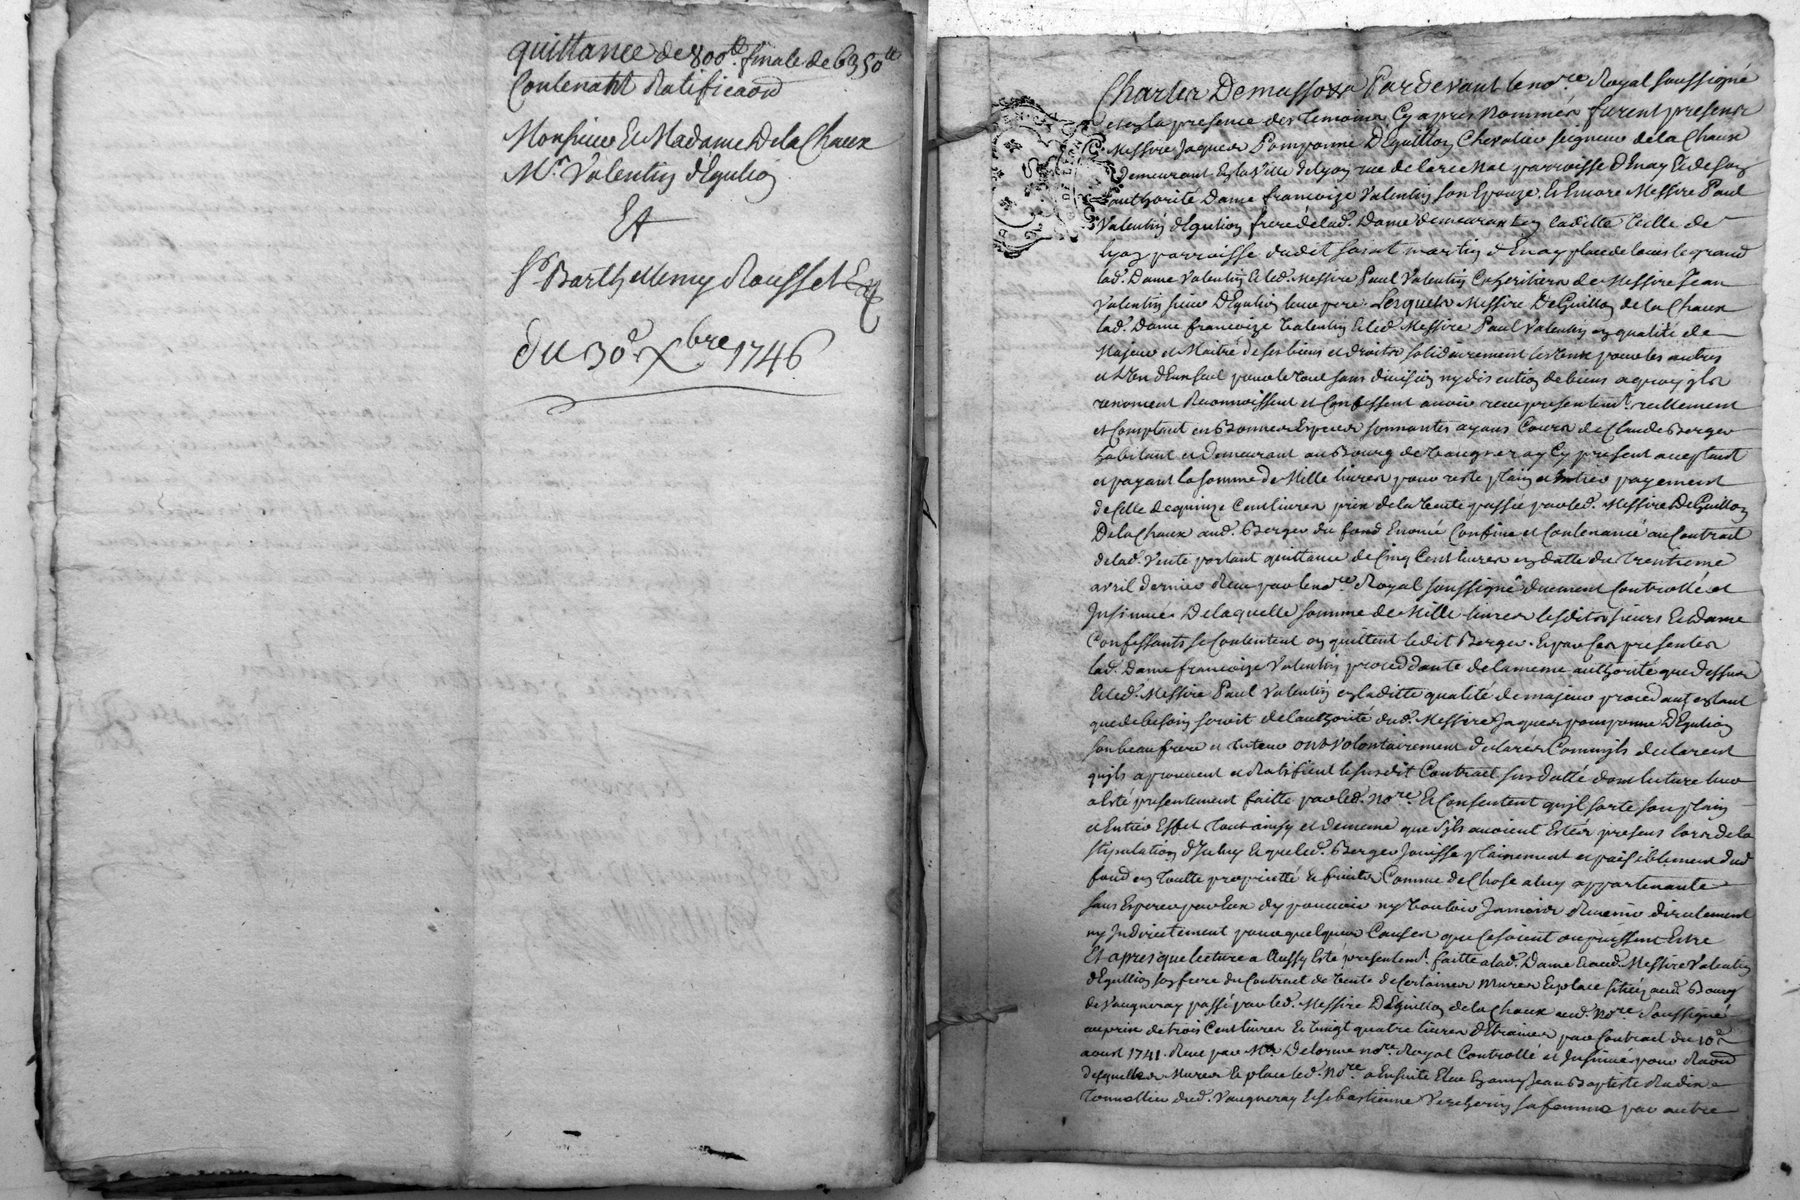 quittance de 800ᵗᵗ. finale de 6350ᵗᵗ
Contenant Ratificaon
Monsieur Et Madame De la Chaux
Mr. Valentin d'Eguilion
Et
Sr. Barthellemy Rousset
du 30e. Xbre 1746
Par devant le nore. Royal soussigné
et en la presence des temoins Cy apres Nommés furent presens
Messire Jaques Pomponne DEguillon Chevalier seigneur de la Chaux
Demeurant En la Ville de Lyon rue de parroisse d'Enay Et de son
authorité Dame francoize Valentin son Epouze, Et Encore Messire Paul
Valentin dEguilion frere de lad. Dame demeurant En laditte Ville de
Lyon parroisse dudit saint martin d'Enay place de Louis le grand
lad. Dame Valentin Et led. Messire Paul Valentin Coheritiers de Messire Jean
Valentin sieur DEguilion leur pere. Lesquels Messire DeGuillon de la Chaux
lad. Dame francoize Valentin Et led. Messire Paul Valentin en qualité de
Majeur et Maitre de ses biens et droits solidairement les uns pour les autres
et L'un d'Eux seul pour le tout sans division ny discution de biens a quoy ils
renoncent Reconnoissent et Confessent avoir receu presentemt. reellement
et Comptant en Bonnes Especes sonnantes ayans Cours de Claude Berger
habitant et demeurant au Bourg de Vaugneray Cy present acceptant
et payant la somme de Mille livres pour reste plain et Entier payement
de Celle de quinze Cent livres prix de la Vente passée par led. Messire DEguillon
De la Chaux aud. Berger du fond Enoncé Confiné et Contenancé au Contrait
de lad. Vente portant quittance de Cinq Cent livres en datte du trentieme
avril dernier Receu par le nore. Royal soussigné duement Controllé et
Insinué. De laquelle somme de Mille livres lesdits sieurs Et dame
Confessants se Contentent en quittent ledit Berger. Et par Ces presentes
lad. Dame francoize Valentin proceddante de la meme authorité que dessus
Et led. Messire Paul Valentin en laditte qualité de majeur procedant en tant
que de besoin seroit de l'authorité dud. Messire Jaques pomponne DEguilion
son beau frere et tuteur ont Volontairement declarés Comm'ils declarent
qu'ils aprouvent et Ratifient le susdit Contract sus datté dont lecture leur
a Eté presentement faitte par led. Nore. Et Consentent qu'il sorte son plain
et Entier Effet tout ainsy et de meme que s'ils avoient Etés presens lors de la
stipulation d'Iceluy Et que led. Berger Jouisse plainement et paisiblement dud
fond en toutte proprietté Et fruits Comme de Chose a luy appartenante
sans Espoir par Eux d'y pouvoir ny Vouloir Jamais Revenir directement
ny Indirectement pour quelques Causes que Ce soient ou puissent Estre
Et apres que lecture a Aussy Eté presentemt. faitte a lad. Dame Et aud. Messire Valentin
dEguilion son frere du Contract de Vente de Certaines Mures Et place situés aud. Bourg
de Vaugneray passé par led. Messire DEguillon de la Chaux aud. Nore Soussigné
au prix de trois Cent livres Et Vingt quatre livres d'Etraines par Contract du 10e
aoust 1741. Receu par Me Delorme nore. Royal Controllé et Insinué. pour Raon
desquelles Mures Et place led. Nore. a Ensuite Elue En amy Jean Baptiste
Tonnellier dud. Vaugneray Et sebastienne sa femme par autre